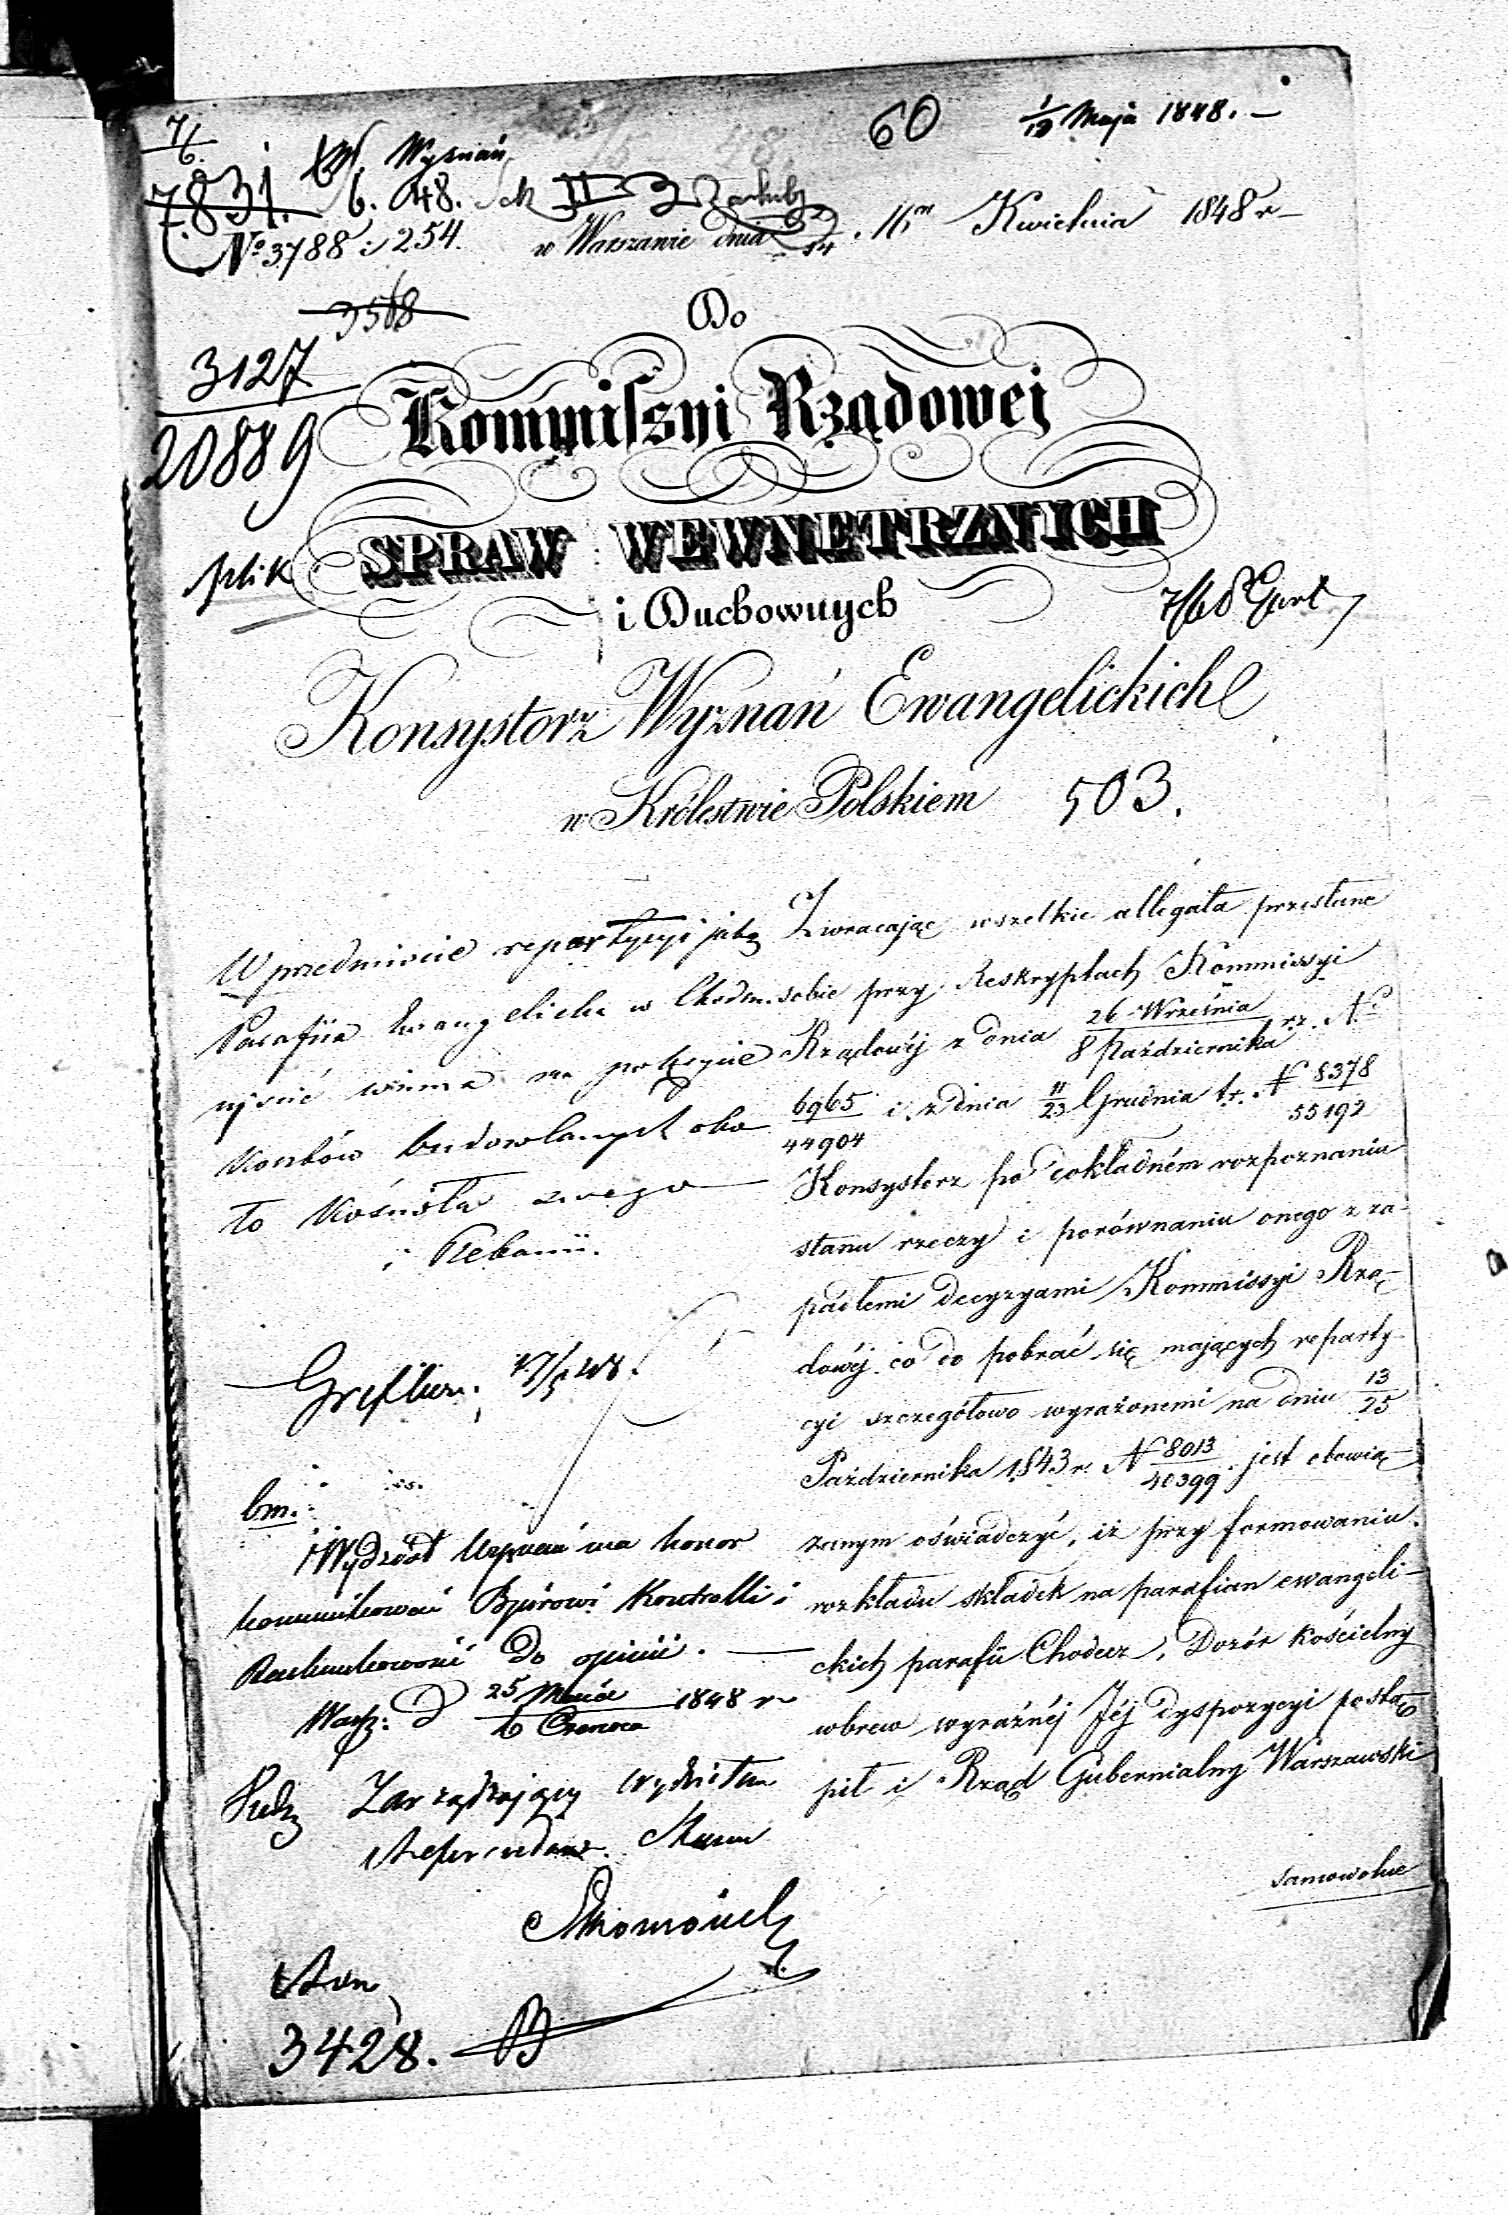 60
1/13 Maja 1848. —
7/6.
W. Wyznań
7831.
6. 48.
No 3788 i 254.
w Warszawie dnia 16m Kwietnia 1848 r
3568
Do
3127
20889
Kommissyi Rządowej
SPRAW WEWNETRZNYCH
plik
i Duchownych
Konsystorz Wyznań Ewangelickich
w Królestwie Polskiem 503.
W przedmiocie repartycyi jaką
Parafija Ewangelicka w Chodcu
ujścić winna na pokrycie
kosztów budowlanych oko
ło Kościoła swego
i Plebanii.
Zwracając wszelkie allegata przesłane
sobie przy Reskryptach Kommissyi
Rządowéj z dnia 26 Września / 8 Października r.z. No
6965/44904 i z dnia 11/23 Grudnia t.r. N 8378/55192
Konsystorz po dokładném rozpoznaniu
stanu rzeczy i porównaniu onego z za-
padłemi decyzyami Kommissyi Rzą-
dowéj co do pobrać się mających reparty-
cyi szczegółowo wyrażonemi na dniu 13/25
Października 1843 r. N 8013/40399 jest obowią-
zanym oświadczyć, iż przy formowaniu
rozkładu składek na parafian ewangeli-
ckich parafii Chodecz, Dozór kościelny
wbrew wyraźnéj Jéj dyspozycyi postą-
pił i Rząd Gubernialny Warszawski
samowolne
bm.
Wydział Wyznań ma honor
kommunikować Bjórowi Kontrolli i
Rachunkowości do opinii. —
Warsz. d 25 Maja / 6 Czerwca 1848 r
Zarządzający Wydziałem
Referendarz Stanu
3428.